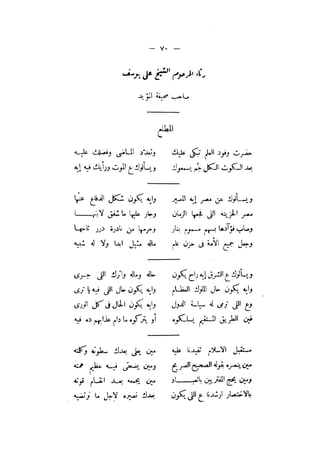 — ٧٠ —
رثاء المرحوم الشيخ على يوسف
صاحب صحيفة المؤيد
المطلع
حضرت وفود العلم تبكى عليك وتعدد الماضى وفضلك عليه
بعد السكوت الكل جم يسمعوك ويسألوك ع الموت ورأيك فيه إيه
ويسألوك عن مصر إيه المصير وايه يكون شكل الدفاع عنها
مصر الحزينه اللى لجمها الزمان وجار عليها ما شفق لابنها
وصاب فؤادها بسهم مسموم بنار وحرمها من نادرة درر تاجها
وجعل جميع الأمة فى حزن عام ماله مثيل ابدا ولا له شبيه
ويسألوك ع الشرق إيه راح يكون حاله وماله واترك اللى جرى
وايه يكون حال الملوك العظام وايه يكون حال اللى فيه يا ترى
وع اللى ترمى له سياسة الدول وايه يكون الحال فى كل الورى
فين الطريق المستقيم يسلكوه أو يتركوه ما دام عذابهم ده فيه
مستقبل الاسلام تفيدنا عليه مين يعلى بعدك سطوته وكلمته
مين ينصره بقوله الصحيح الصريح ومين يضحى فيه عظيم همته
ومين يحج المفتريين بالعـــناد مين يحميه بعد انقسام قوته
بالاختصار ارشدنا ع اللى يكون بعدك نصيره لاجل ما نرتضيه